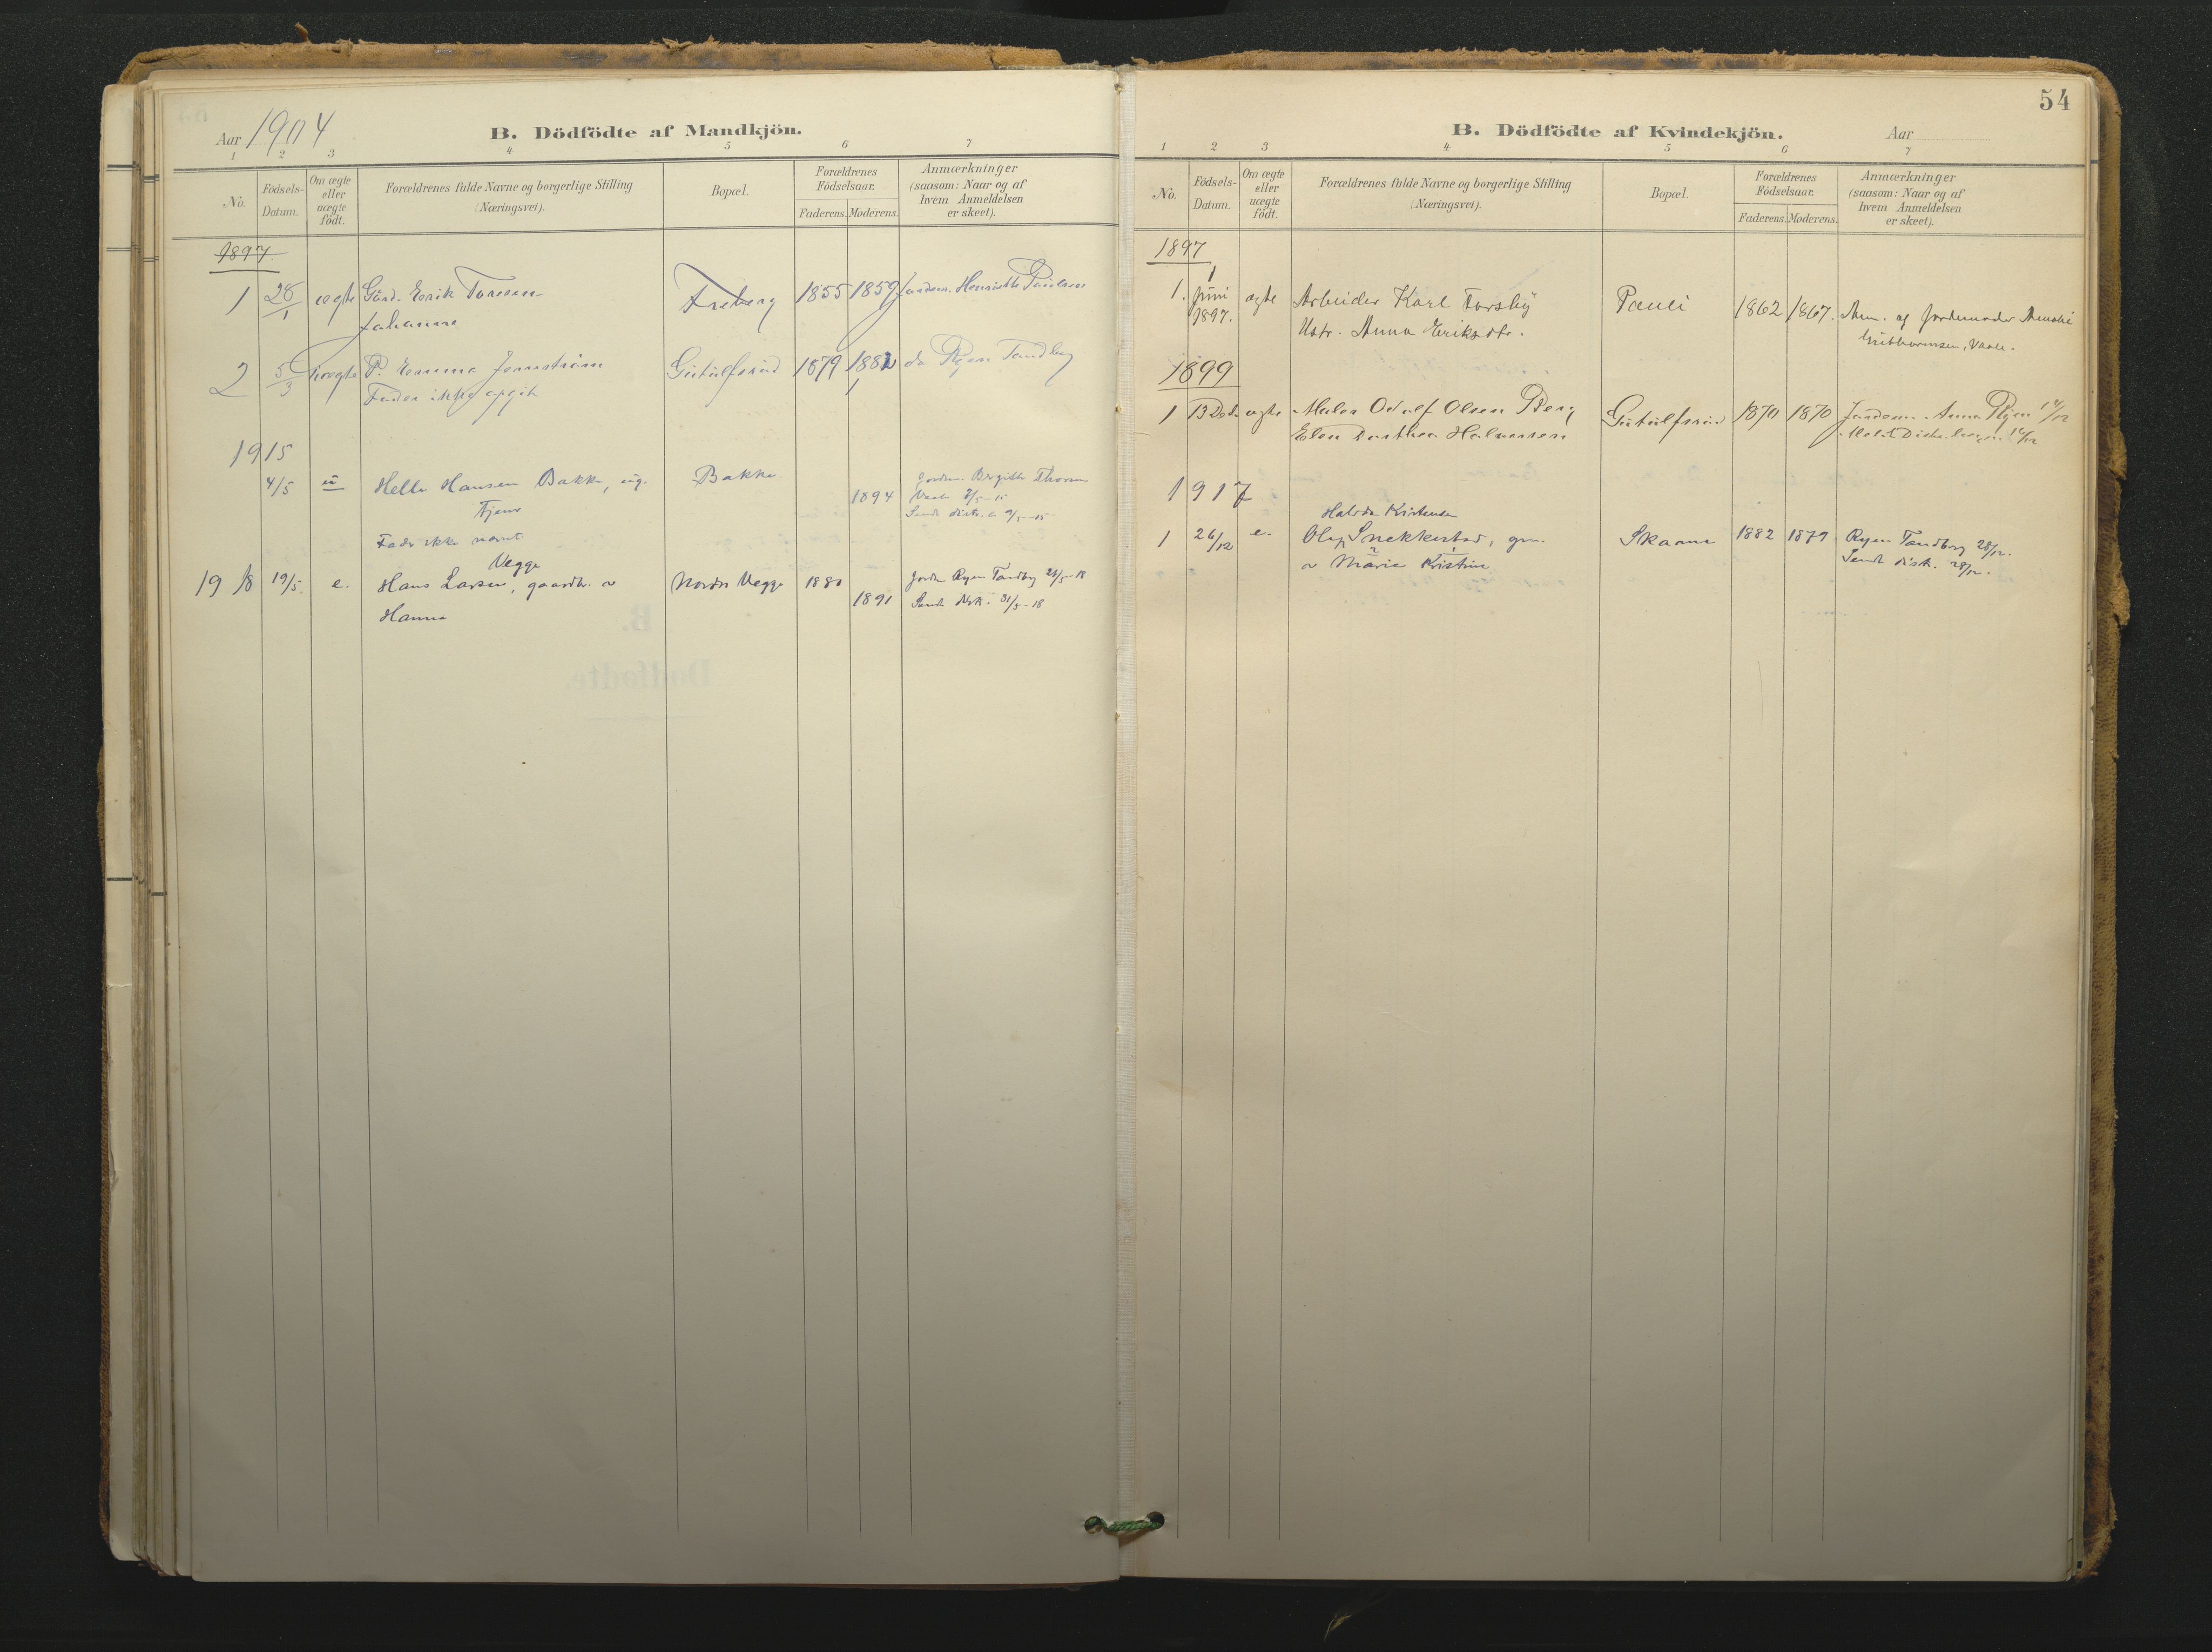 Aar 1904
B. Dödfödte af Mandkjön.
1 2 3 4 5 6 7
No. Födsels-Datum. Om ægte eller uægte födt. Forældrenes fulde Navne og borgerlige Stilling (Næringsvei). Bopæl. Forældrenes Födselsaar. Faderens. Moderens. Anmærkninger (saasom: Naar og af hvem Anmeldelsen er skeet).
1897
1 28/1 ægte Gård. Erik Toresen Freberg 1855 1859 Jordem. Henriette Paulsen
Johanne
2 5/3 uægte P. Emma Jernström Gutulfsrud 1879 1882 do Ryen Tandberg
Fader ikke opgit
1915
4/5 u Helle Hansen Bakke, ug. Bakke 1894 Jordm. Birgitte Thoresen
Tjene
Fader ikke nævnt
Vegge
1918 19/5 e. Hans Larsen, gaardbr. o Nordre Vegge 1880 1891 Jordm Ryen Tandberg 28/5-18
Hanna Sendt distr. 31/5-18
54
B. Dödfödte af Kvindekjön.
Aar
1 2 3 4 5 6 7
No. Födsels-Datum. Om ægte eller uægte födt. Forældrenes fulde Navne og borgerlige Stilling (Næringsvei). Bopæl. Forældrenes Födselsaar. Faderens. Moderens. Anmærkninger (saasom: Naar og af hvem Anmeldelsen er skeet).
1897
1. 1 Juni 1897. ægte Arbeider Karl Forsby Pauli 1862 1867. Anm. af Jordemoder
Hstr. Anna Eriksdtr. Vaale.
1899
1 13 Dec ægte Maler Odolf Olsen Berg Gutulfsrud 1870 1870 Jordem. Anna Ryen 14/12
Elen Dorthea Halvorsen
1917
Halvdan Kristensen
1 26/12 e. Olaf Snekkestad, gm. Skaane 1882 1879 Ryen Tandberg 28/12.
o Marie Kristine Sendt distr. 28/12.